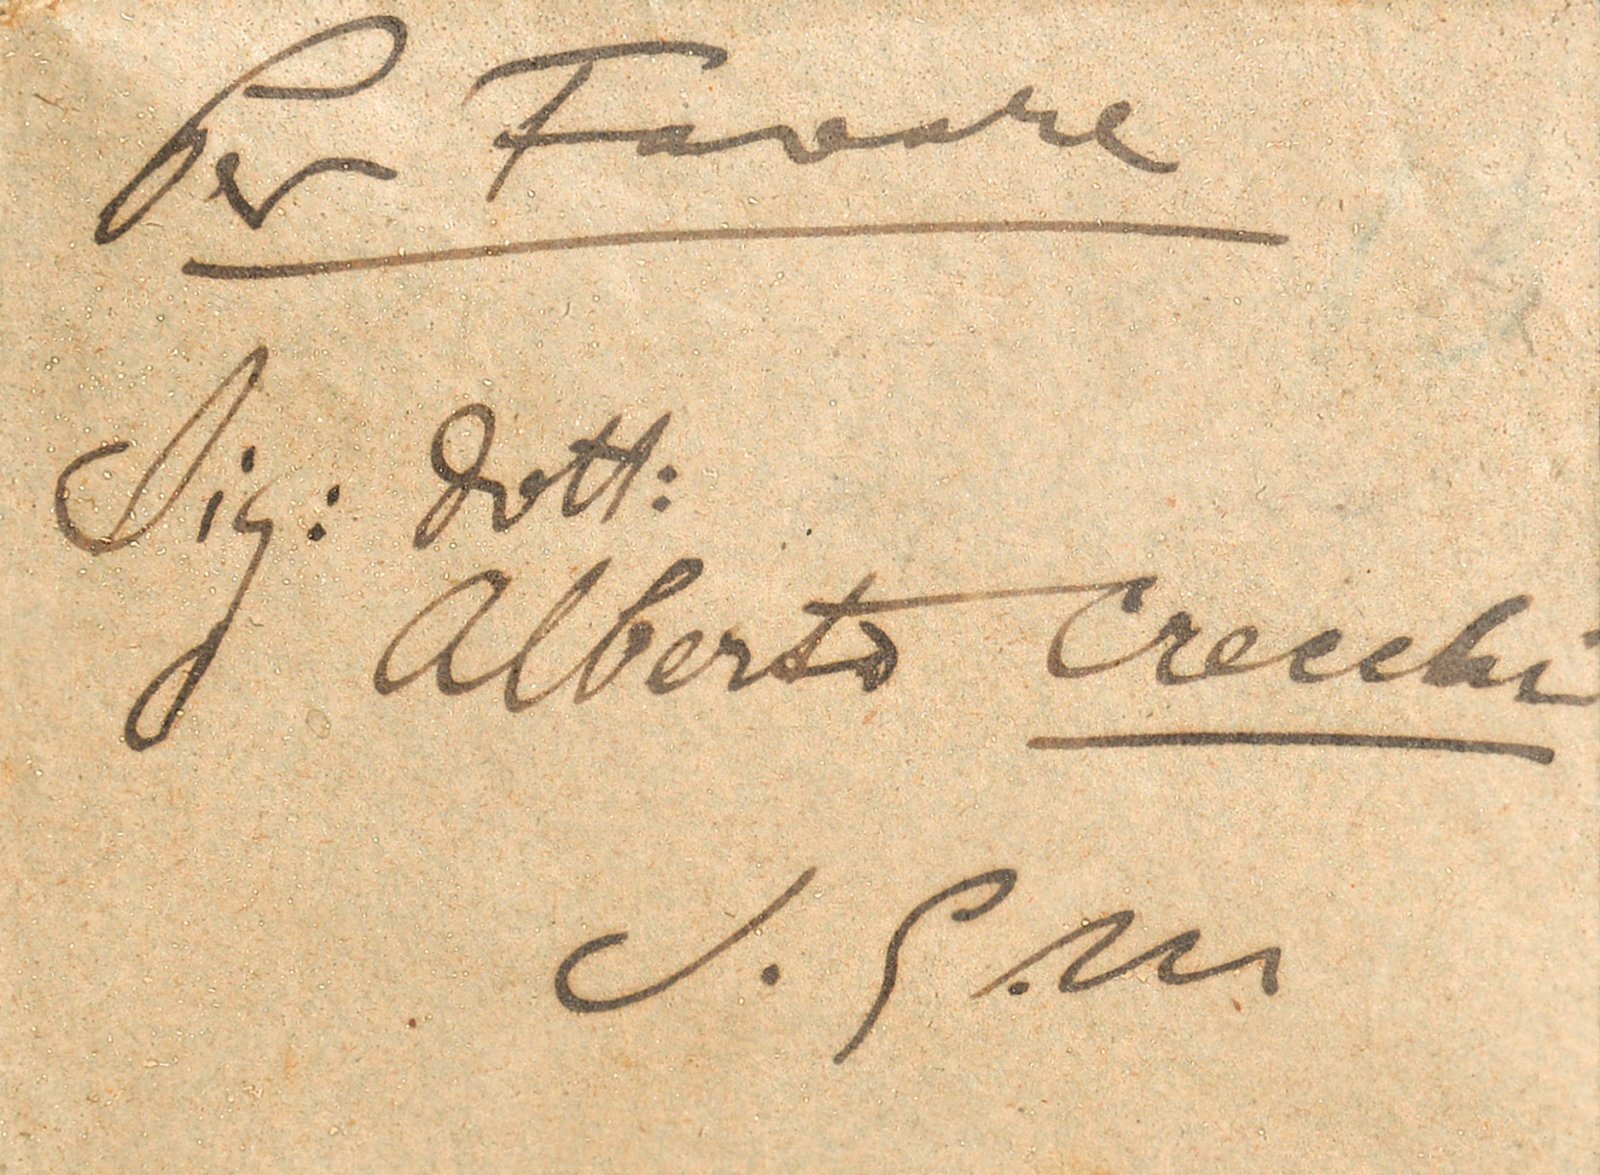 Per Favore
Sig: dott:
Alberto Crecchi
S. G. M.